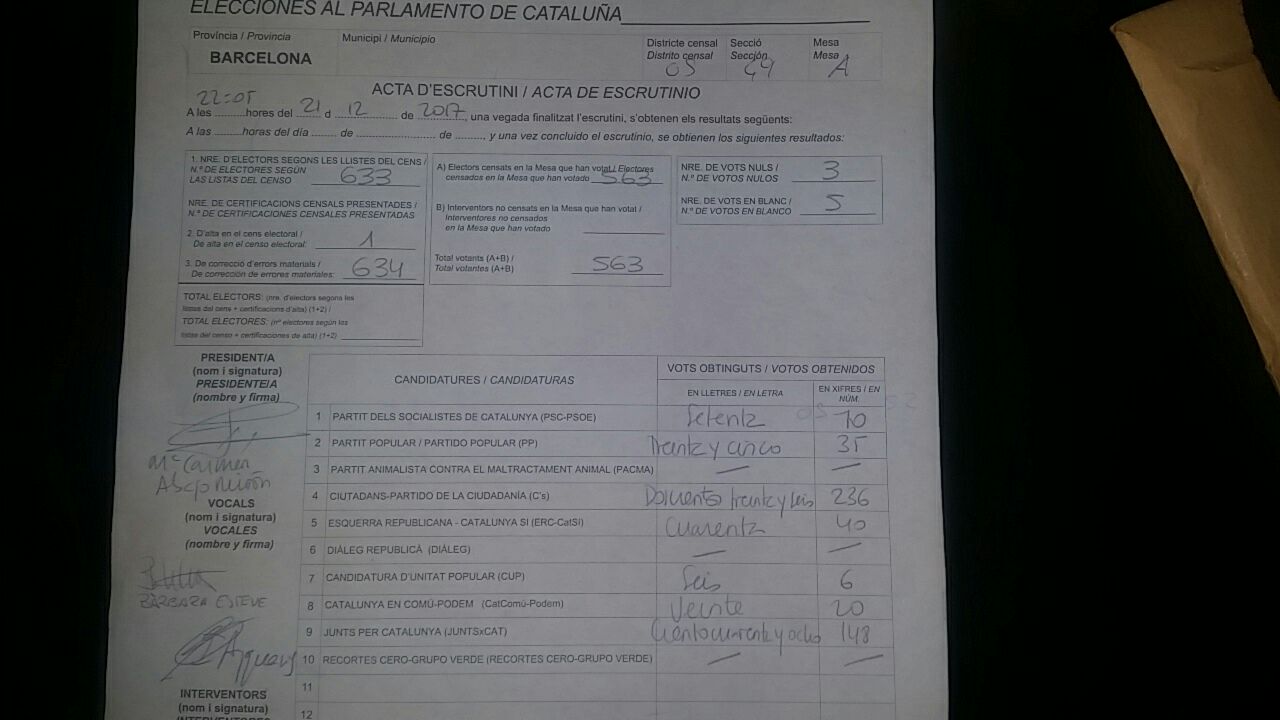 ELECCIONES AL PARLAMENTO DE CATALUÑA
Província / Provincia
BARCELONA
Municipi / Municipio
Districte censal
Distrito censal
Secció
Sección
Mesa
Mesa
A
ACTA D'ESCRUTINI / ACTA DE ESCRUTINIO
A les 22:05 hores del 21 d 12 de 2017, una vegada finalitzat l'escrutini, s'obtenen els resultats següents:
A las ..........horas del día ........ de .............................. de ........., y una vez concluido el escrutinio, se obtienen los siguientes resultados:
1. NRE. D'ELECTORS SEGONS LES LLISTES DEL CENS /
N.º DE ELECTORES SEGÚN
LAS LISTAS DEL CENSO 633
NRE. DE CERTIFICACIONS CENSALS PRESENTADES /
N.º DE CERTIFICACIONES CENSALES PRESENTADAS
2. D'alta en el cens electoral /
De alta en el censo electoral: 1
3. De correcció d'errors materials /
De corrección de errores materiales: 634
TOTAL ELECTORS: (nre. d'electors segons les
llistes del cens + certificacions d'alta) (1+2) /
TOTAL ELECTORES: (nº electores según las
listas del censo + certificaciones de alta) (1+2)
A) Electors censats en la Mesa que han votat / Electores
censados en la Mesa que han votado 563
B) Interventors no censats en la Mesa que han votat /
Interventores no censados
en la Mesa que han votado
Total votants (A+B) /
Total votantes (A+B) 563
NRE. DE VOTS NULS /
N.º DE VOTOS NULOS 3
NRE. DE VOTS EN BLANC /
N.º DE VOTOS EN BLANCO 5
PRESIDENT/A
(nom i signatura)
PRESIDENTE/A
(nombre y firma)
Mª Carmen
VOCALS
(nom i signatura)
VOCALES
(nombre y firma)
BÁRBARA ESTEVE
INTERVENTORS
(nom i signatura)
CANDIDATURES / CANDIDATURAS
VOTS OBTINGUTS / VOTOS OBTENIDOS
EN LLETRES / EN LETRA
EN XIFRES / EN
NÚM.
1 PARTIT DELS SOCIALISTES DE CATALUNYA (PSC-PSOE) Setenta 70
2 PARTIT POPULAR / PARTIDO POPULAR (PP) Treinta y cinco 35
3 PARTIT ANIMALISTA CONTRA EL MALTRACTAMENT ANIMAL (PACMA) — —
4 CIUTADANS-PARTIDO DE LA CIUDADANÍA (C's) Doscientos treinta y seis 236
5 ESQUERRA REPUBLICANA - CATALUNYA SI (ERC-CatSI) Cuarenta 40
6 DIÀLEG REPUBLICÀ (DIÀLEG) — —
7 CANDIDATURA D'UNITAT POPULAR (CUP) Seis 6
8 CATALUNYA EN COMÚ-PODEM (CatComú-Podem) Veinte 20
9 JUNTS PER CATALUNYA (JUNTSxCAT) Ciento cuarenta y ocho 148
10 RECORTES CERO-GRUPO VERDE (RECORTES CERO-GRUPO VERDE) — —
11
12